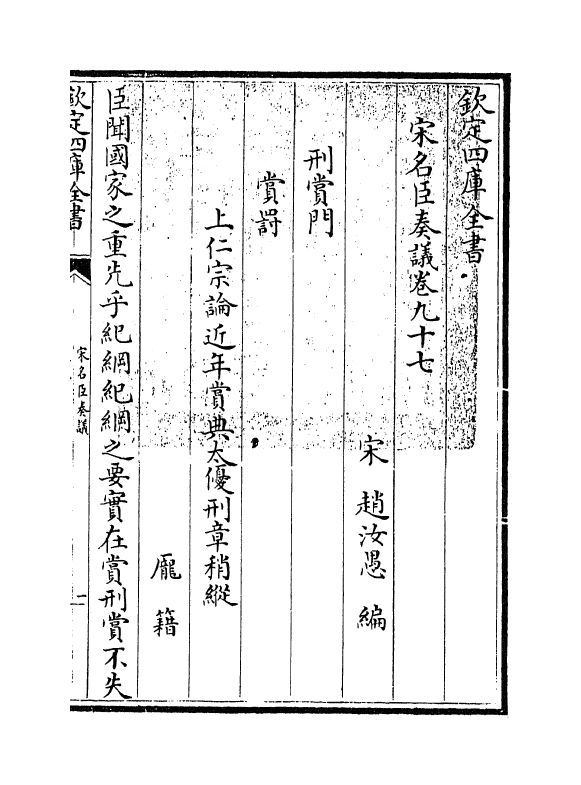 欽定四庫全書
宋名臣奏議卷九十七
宋 趙汝愚 編
刑賞門
賞罰
上仁宗論近年賞典太優刑章稍縱
龐籍
臣聞國家之重先乎紀綱紀綱之要實在賞刑賞不失
欽定四庫全書
宋名臣奏議
一